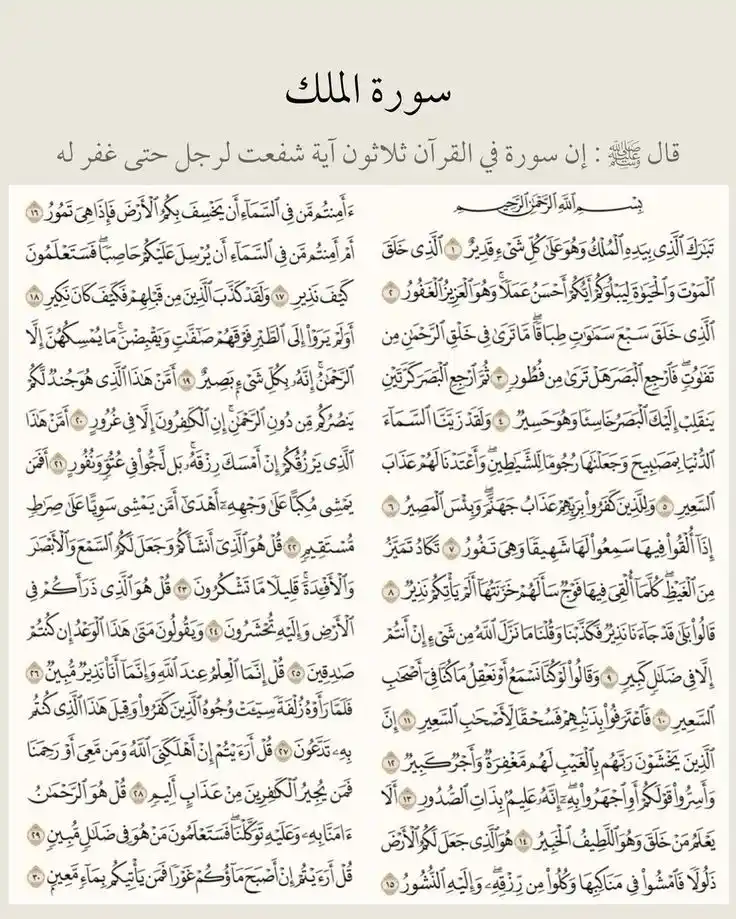 سورة الملك
قال ﷺ : إن سورة في القرآن ثلاثون آية شفعت لرجل حتى غفر له
بِسْمِ ٱللَّهِ ٱلرَّحْمَٰنِ ٱلرَّحِيمِ
تَبَٰرَكَ ٱلَّذِى بِيَدِهِ ٱلْمُلْكُ وَهُوَ عَلَىٰ كُلِّ شَىْءٍ قَدِيرٌ ١ ٱلَّذِى خَلَقَ
ٱلْمَوْتَ وَٱلْحَيَوٰةَ لِيَبْلُوَكُمْ أَيُّكُمْ أَحْسَنُ عَمَلًا ۚ وَهُوَ ٱلْعَزِيزُ ٱلْغَفُورُ ٢
ٱلَّذِى خَلَقَ سَبْعَ سَمَٰوَٰتٍ طِبَاقًا ۖ مَّا تَرَىٰ فِى خَلْقِ ٱلرَّحْمَٰنِ مِن
تَفَٰوُتٍ ۖ فَٱرْجِعِ ٱلْبَصَرَ هَلْ تَرَىٰ مِن فُطُورٍ ٣ ثُمَّ ٱرْجِعِ ٱلْبَصَرَ كَرَّتَيْنِ
يَنقَلِبْ إِلَيْكَ ٱلْبَصَرُ خَاسِئًا وَهُوَ حَسِيرٌ ٤ وَلَقَدْ زَيَّنَّا ٱلسَّمَآءَ
ٱلدُّنْيَا بِمَصَٰبِيحَ وَجَعَلْنَٰهَا رُجُومًا لِّلشَّيَٰطِينِ ۖ وَأَعْتَدْنَا لَهُمْ عَذَابَ
ٱلسَّعِيرِ ٥ وَلِلَّذِينَ كَفَرُوا۟ بِرَبِّهِمْ عَذَابُ جَهَنَّمَ ۖ وَبِئْسَ ٱلْمَصِيرُ ٦
إِذَآ أُلْقُوا۟ فِيهَا سَمِعُوا۟ لَهَا شَهِيقًا وَهِىَ تَفُورُ ٧ تَكَادُ تَمَيَّزُ
مِنَ ٱلْغَيْظِ ۖ كُلَّمَآ أُلْقِىَ فِيهَا فَوْجٌ سَأَلَهُمْ خَزَنَتُهَآ أَلَمْ يَأْتِكُمْ نَذِيرٌ ٨
قَالُوا۟ بَلَىٰ قَدْ جَآءَنَا نَذِيرٌ فَكَذَّبْنَا وَقُلْنَا مَا نَزَّلَ ٱللَّهُ مِن شَىْءٍ إِنْ أَنتُمْ
إِلَّا فِى ضَلَٰلٍ كَبِيرٍ ٩ وَقَالُوا۟ لَوْ كُنَّا نَسْمَعُ أَوْ نَعْقِلُ مَا كُنَّا فِىٓ أَصْحَٰبِ
ٱلسَّعِيرِ ١٠ فَٱعْتَرَفُوا۟ بِذَنۢبِهِمْ فَسُحْقًا لِّأَصْحَٰبِ ٱلسَّعِيرِ ١١ إِنَّ
ٱلَّذِينَ يَخْشَوْنَ رَبَّهُم بِٱلْغَيْبِ لَهُم مَّغْفِرَةٌ وَأَجْرٌ كَبِيرٌ ١٢
وَأَسِرُّوا۟ قَوْلَكُمْ أَوِ ٱجْهَرُوا۟ بِهِۦٓ ۖ إِنَّهُۥ عَلِيمٌۢ بِذَاتِ ٱلصُّدُورِ ١٣ أَلَا
يَعْلَمُ مَنْ خَلَقَ وَهُوَ ٱللَّطِيفُ ٱلْخَبِيرُ ١٤ هُوَ ٱلَّذِى جَعَلَ لَكُمُ ٱلْأَرْضَ
ذَلُولًا فَٱمْشُوا۟ فِى مَنَاكِبِهَا وَكُلُوا۟ مِن رِّزْقِهِۦ ۖ وَإِلَيْهِ ٱلنُّشُورُ ١٥
ءَأَمِنتُم مَّن فِى ٱلسَّمَآءِ أَن يَخْسِفَ بِكُمُ ٱلْأَرْضَ فَإِذَا هِىَ تَمُورُ ١٦
أَمْ أَمِنتُم مَّن فِى ٱلسَّمَآءِ أَن يُرْسِلَ عَلَيْكُمْ حَاصِبًا ۖ فَسَتَعْلَمُونَ
كَيْفَ نَذِيرِ ١٧ وَلَقَدْ كَذَّبَ ٱلَّذِينَ مِن قَبْلِهِمْ فَكَيْفَ كَانَ نَكِيرِ ١٨
أَوَلَمْ يَرَوْا۟ إِلَى ٱلطَّيْرِ فَوْقَهُمْ صَٰٓفَّٰتٍ وَيَقْبِضْنَ ۚ مَا يُمْسِكُهُنَّ إِلَّا
ٱلرَّحْمَٰنُ ۚ إِنَّهُۥ بِكُلِّ شَىْءٍۭ بَصِيرٌ ١٩ أَمَّنْ هَٰذَا ٱلَّذِى هُوَ جُندٌ لَّكُمْ
يَنصُرُكُم مِّن دُونِ ٱلرَّحْمَٰنِ ۚ إِنِ ٱلْكَٰفِرُونَ إِلَّا فِى غُرُورٍ ٢٠ أَمَّنْ هَٰذَا
ٱلَّذِى يَرْزُقُكُمْ إِنْ أَمْسَكَ رِزْقَهُۥ ۚ بَل لَّجُّوا۟ فِى عُتُوٍّ وَنُفُورٍ ٢١ أَفَمَن
يَمْشِى مُكِبًّا عَلَىٰ وَجْهِهِۦٓ أَهْدَىٰٓ أَمَّن يَمْشِى سَوِيًّا عَلَىٰ صِرَٰطٍ
مُّسْتَقِيمٍ ٢٢ قُلْ هُوَ ٱلَّذِىٓ أَنشَأَكُمْ وَجَعَلَ لَكُمُ ٱلسَّمْعَ وَٱلْأَبْصَٰرَ
وَٱلْأَفْـِٔدَةَ ۖ قَلِيلًا مَّا تَشْكُرُونَ ٢٣ قُلْ هُوَ ٱلَّذِى ذَرَأَكُمْ فِى
ٱلْأَرْضِ وَإِلَيْهِ تُحْشَرُونَ ٢٤ وَيَقُولُونَ مَتَىٰ هَٰذَا ٱلْوَعْدُ إِن كُنتُمْ
صَٰدِقِينَ ٢٥ قُلْ إِنَّمَا ٱلْعِلْمُ عِندَ ٱللَّهِ وَإِنَّمَآ أَنَا۠ نَذِيرٌ مُّبِينٌ ٢٦
فَلَمَّا رَأَوْهُ زُلْفَةً سِيٓـَٔتْ وُجُوهُ ٱلَّذِينَ كَفَرُوا۟ وَقِيلَ هَٰذَا ٱلَّذِى كُنتُم
بِهِۦ تَدَّعُونَ ٢٧ قُلْ أَرَءَيْتُمْ إِنْ أَهْلَكَنِىَ ٱللَّهُ وَمَن مَّعِىَ أَوْ رَحِمَنَا
فَمَن يُجِيرُ ٱلْكَٰفِرِينَ مِنْ عَذَابٍ أَلِيمٍ ٢٨ قُلْ هُوَ ٱلرَّحْمَٰنُ
ءَامَنَّا بِهِۦ وَعَلَيْهِ تَوَكَّلْنَا ۖ فَسَتَعْلَمُونَ مَنْ هُوَ فِى ضَلَٰلٍ مُّبِينٍ ٢٩
قُلْ أَرَءَيْتُمْ إِنْ أَصْبَحَ مَآؤُكُمْ غَوْرًا فَمَن يَأْتِيكُم بِمَآءٍ مَّعِينٍۭ ٣٠